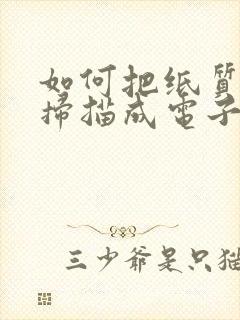 如何把纸質
掃描成電子
三少爷是只猫